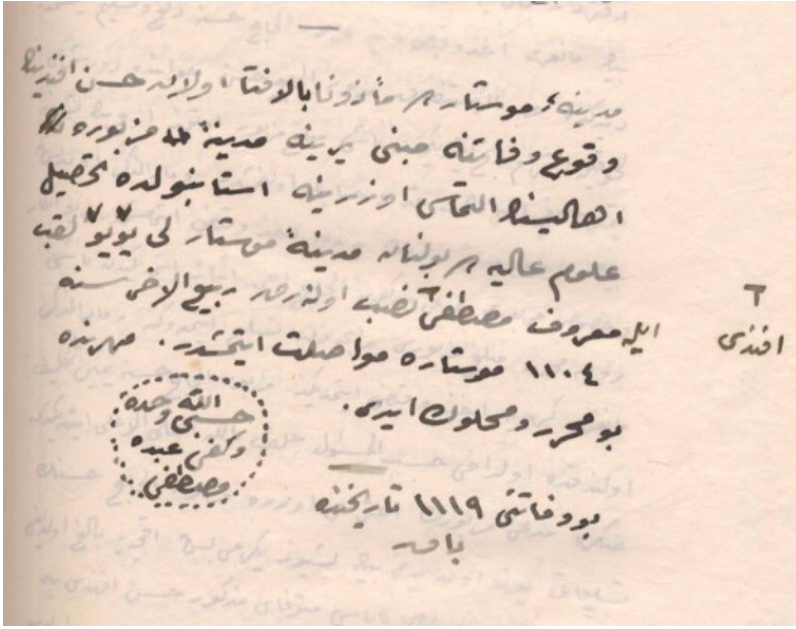 مدینهٔ موستارده مأذونا بالافتا اولان حسن افندینك
وقوع وفاتنه مبنی یرینه مدینهٔ مزبوره
اهالیسنك التماسی اوزرینه استانبولده تحصیل
علوم عالیه ده بولنان مدینهٔ موستارلی یویو لقب
ایله معروف مصطفی نصب اولنه رق ربیع الاخر سنه
افندی
١١٠٤ موستاره مواصلت ایتمشدر. مهرنده
بو محرر و محكوك ایدی.
الله
حسبی وحده
وكفی عبده
مصطفی
بو وفاتنی ١١١٩ تاریخنده
باق